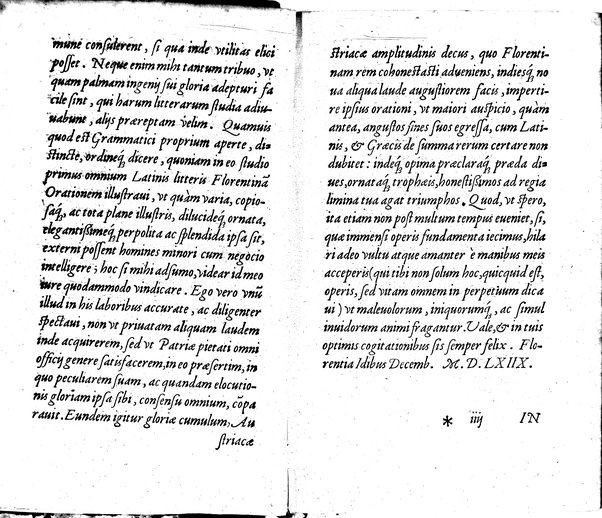 mune consulerent, si qua inde vtilitas elici
posset. Neque enim mihi tantum tribuo, vt
quam palmam ingenij sui gloria adepturi fa
cile sint, qui harum litterarum studia adiu
uabunt, alijs præreptam velim. Quamuis
quod est Grammatici proprium aperte, di-
stincte, ordineq́; dicere, quoniam in eo studio
primus omnium Latinis litteris Florentinã
Orationem illustraui, vt quàm varia, copio-
saq́;, ac tota plane illustris, dilucideq́; ornata,
elegantissimeq́; perpolita ac splendida ipsa sit,
externi possent homines minori cum negocio
intelligere; hoc si mihi adsumo, videar id meo
iure quodammodo vindicare. Ego vero vnũ
illud in his laboribus accurate, ac diligenter
spectaui, non vt priuatam aliquam laudem
inde acquirerem, sed vt Patriæ pietati omni
officij genere satisfacerem, in eo præsertim, in
quo peculiarem suam, ac quandam elocutio-
nis gloriam ipsa sibi, consensu omnium, cõpa
rauit. Eundem igitur gloriæ cumulum, Au
striacæ
striacæ amplitudinis decus, quo Florenti-
nam rem cohonestasti adueniens, indiesq́; no
ua aliqua laude augustiorem facis, imperti-
re ipsius orationi, vt maiori auspicio, quàm
antea, angustos fines suos egressa, cum Lati-
nis, & Græcis de summa rerum certare non
dubitet: indeq́; opima præclaraq́; præda di-
ues, ornataq́; trophæis, honestissimos ad regia
limina tua agat triumphos. Quod, vt spero,
ita etiam non post multum tempus eueniet, si,
quæ immensi operis fundamenta iecimus, hila
ri adeo vultu atque amanter è manibus meis
acceperis (qui tibi non solum hoc, quicquid est,
operis, sed vitam omnem in perpetuum dica
ui) vt maleuolorum, iniquorumq́;, ac simul
inuidorum animi frangantur. Vale, & in tuis
optimis cogitationibus sis semper felix. Flo-
rentia Idibus Decemb. M. D. LXIIX.
* iiij IN